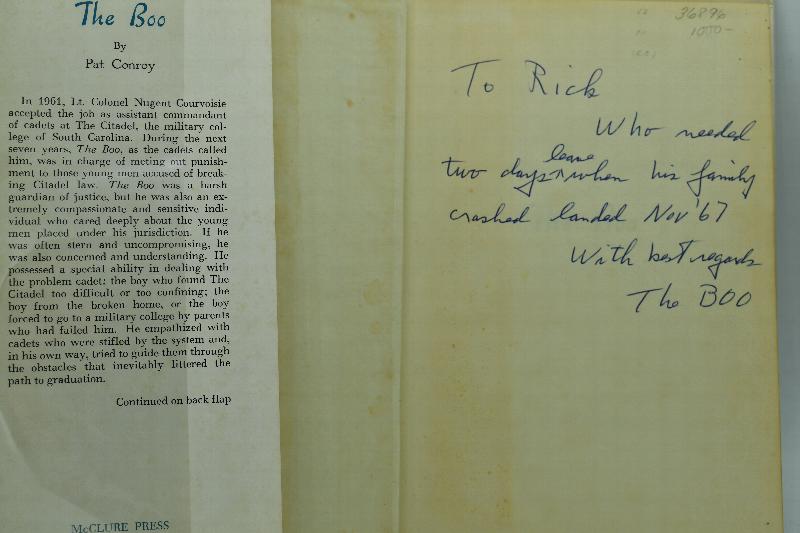 The Boo
By
Pat Conroy
In 1961, Lt. Colonel Nugent Courvoisie
accepted the job as assistant commandant
of cadets at The Citadel, the military col-
lege of South Carolina. During the next
seven years, The Boo, as the cadets called
him, was in charge of meting out punish-
ment to those young men accused of break-
ing Citadel law. The Boo was a harsh
guardian of justice, but he was also an ex-
tremely compassionate and sensitive indi-
vidual who cared deeply about the young
men placed under his jurisdiction. If he
was often stern and uncompromising, he
was also concerned and understanding. He
possessed a special ability in dealing with
the problem cadet: the boy who found The
Citadel too difficult or too confining; the
boy from the broken home, or the boy
forced to go to a military college by parents
who had failed him. He empathized with
cadets who were stifled by the system and,
in his own way, tried to guide them through
the obstacles that inevitably littered the
path to graduation.
Continued on back flap
McCLURE PRESS
36896
To Rick
Who needed
two days leave when his family
crashed landed Nov '67
With best regards
The BOO